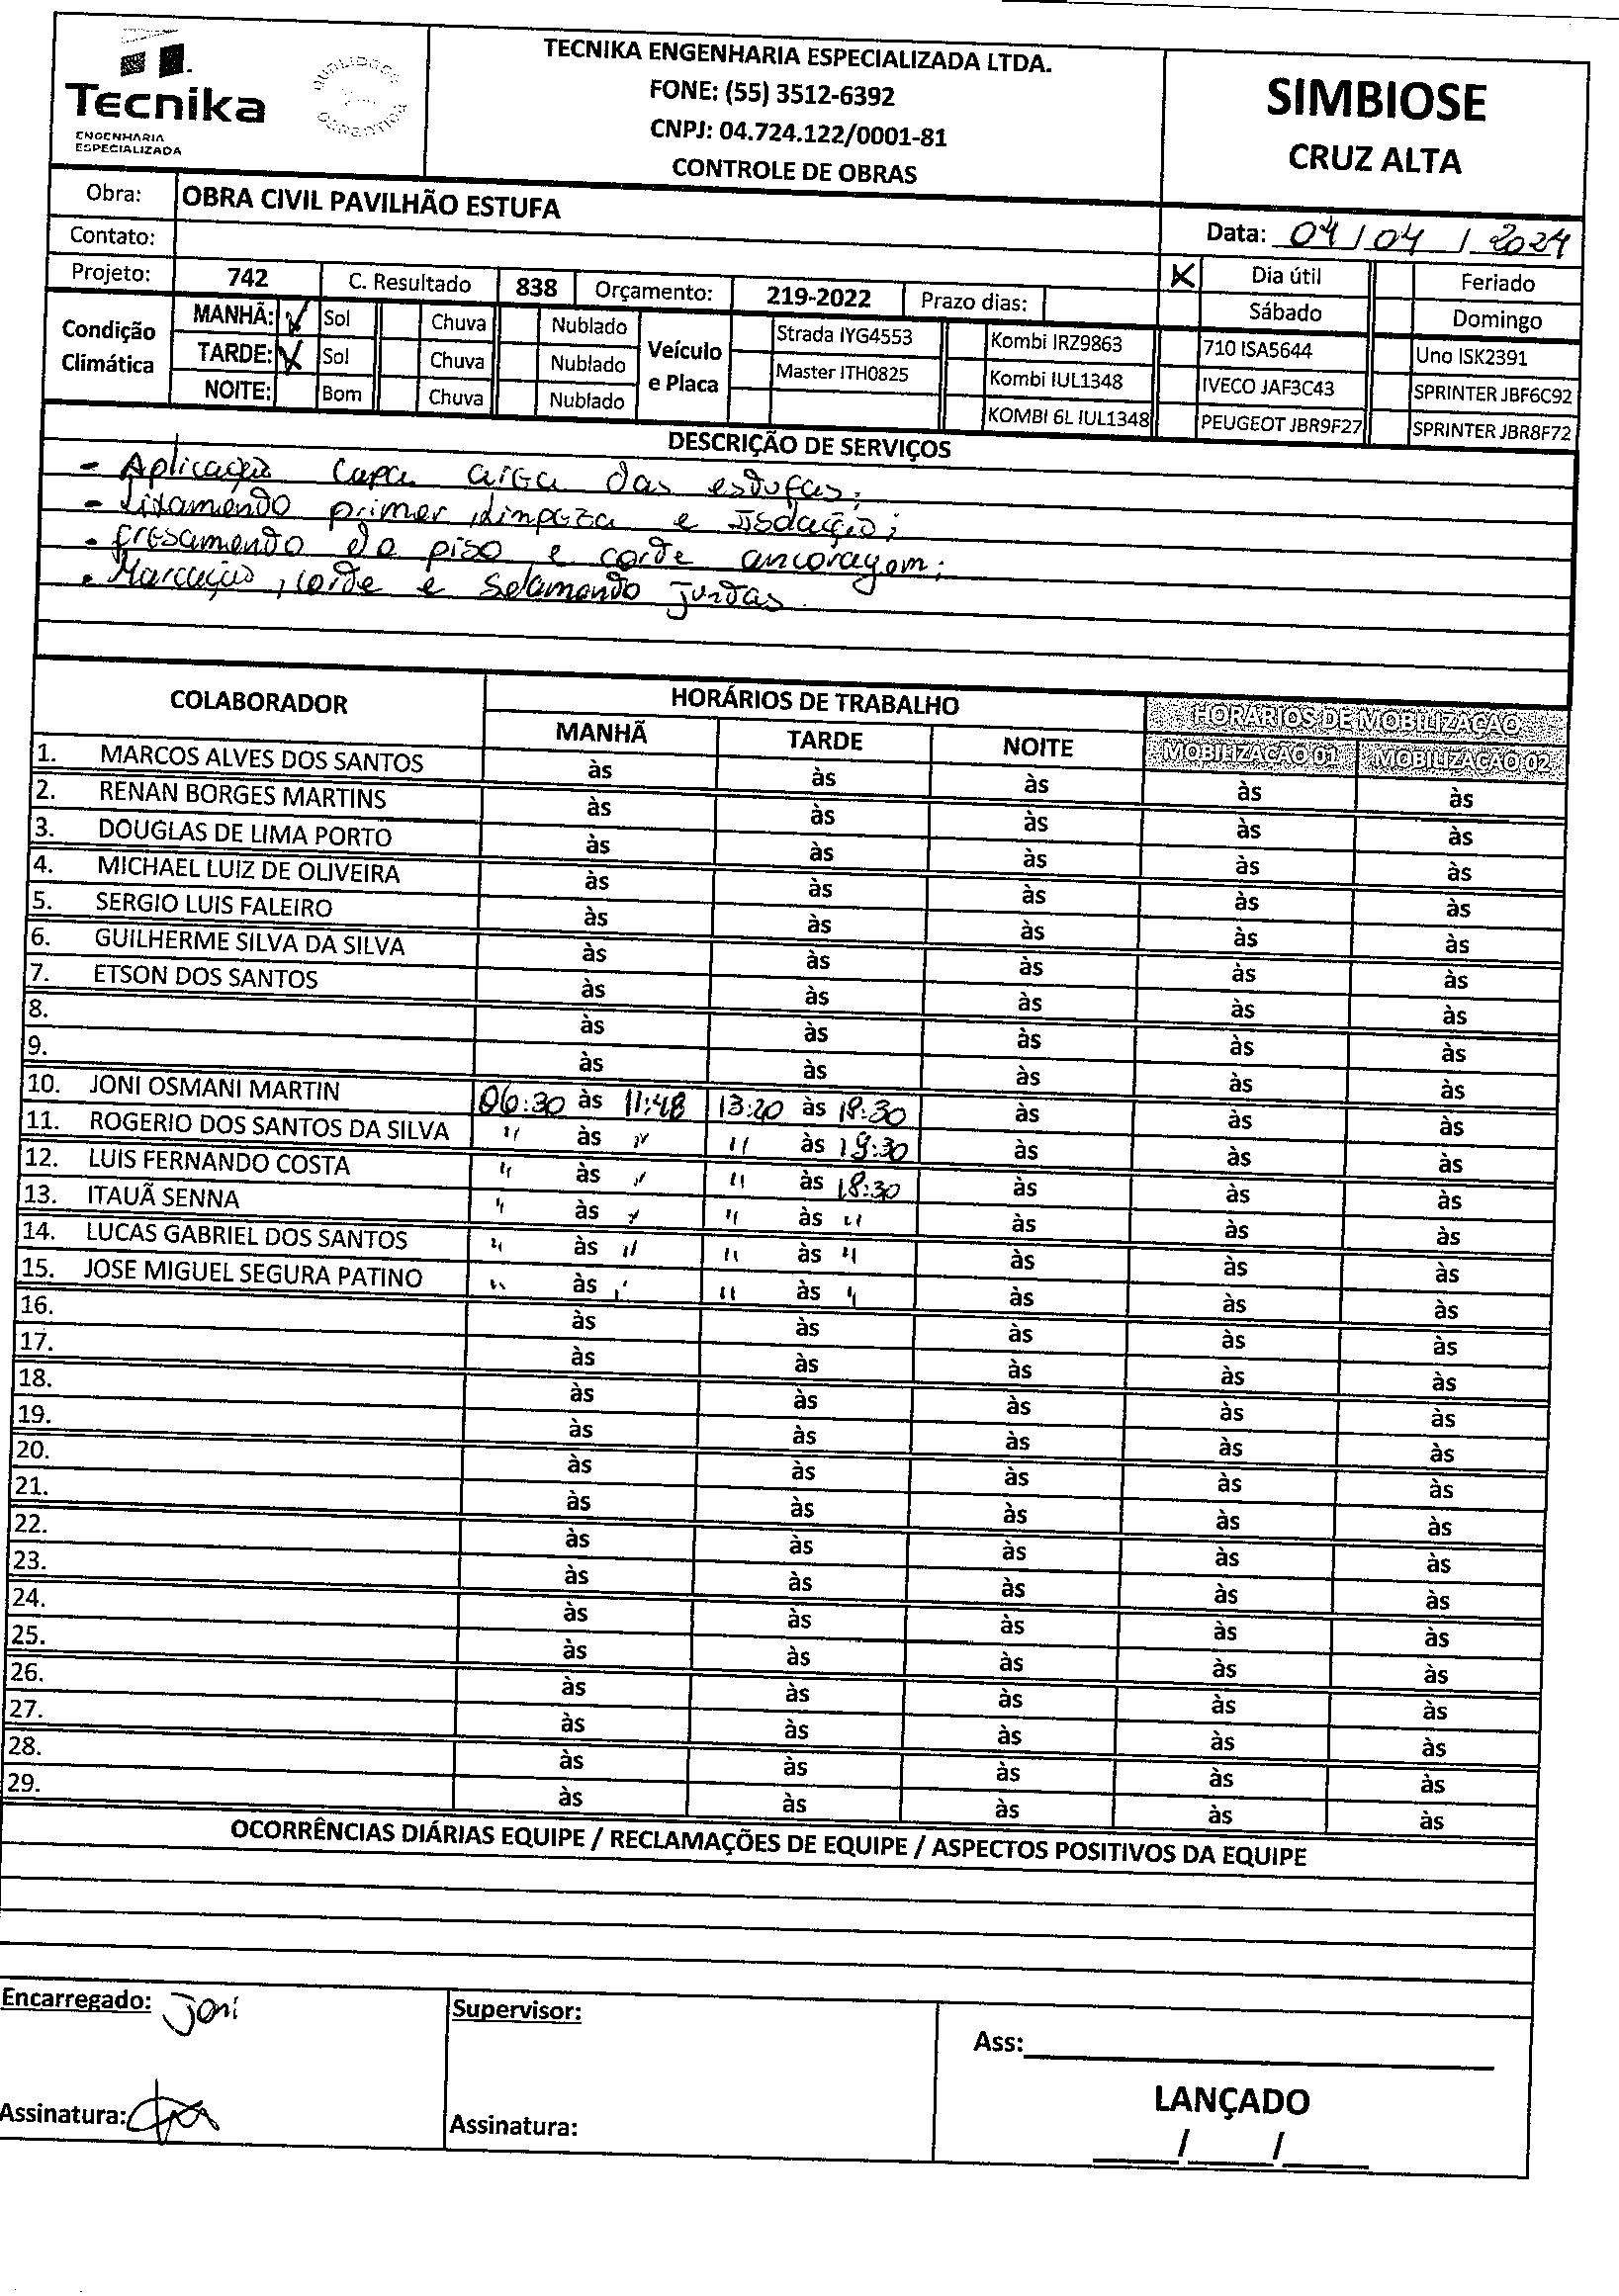 Tecnika
ENGENHARIA
ESPECIALIZADA
QUALIDADE
GARANTIDA
TECNIKA ENGENHARIA ESPECIALIZADA LTDA.
FONE: (55) 3512-6392
CNPJ: 04.724.122/0001-81
CONTROLE DE OBRAS
SIMBIOSE
CRUZ ALTA
Obra: OBRA CIVIL PAVILHÃO ESTUFA
Data: 04/04/2024
Contato:
Projeto: 742 C. Resultado 838 Orçamento: 219-2022 Prazo dias:
X Dia útil Feriado
Sábado Domingo
Condição Climática
MANHÃ: Sol Chuva Nublado
TARDE: Sol Chuva Nublado
NOITE: Bom Chuva Nublado
Veículo e Placa
Strada IYG4553 Kombi IRZ9863 710 ISA5644 Uno ISK2391
Master ITH0825 Kombi IUL1348 IVECO JAF3C43 SPRINTER JBF6C92
KOMBI 6L IUL1348 PEUGEOT JBR9F27 SPRINTER JBR8F72
DESCRIÇÃO DE SERVIÇOS
- Aplicação capa area das estufas;
- Lixamendo primer, limpeza e
- Fresamendo do piso e corte ancoragem;
- Marcação, corte e Selamendo jundas.
COLABORADOR HORÁRIOS DE TRABALHO HORÁRIOS DE MOBILIZAÇÃO
MANHÃ TARDE NOITE MOBILIZAÇÃO 01 MOBILIZAÇÃO 02
1. MARCOS ALVES DOS SANTOS às às às às às
2. RENAN BORGES MARTINS às às às às às
3. DOUGLAS DE LIMA PORTO às às às às às
4. MICHAEL LUIZ DE OLIVEIRA às às às às às
5. SERGIO LUIS FALEIRO às às às às às
6. GUILHERME SILVA DA SILVA às às às às às
7. ETSON DOS SANTOS às às às às às
8. às às às às às
9. às às às às às
10. JONI OSMANI MARTIN 06:30 às 11:48 13:20 às 18:30 às às às
11. ROGERIO DOS SANTOS DA SILVA " às " " às 19:30 às às às
12. LUIS FERNANDO COSTA " às " " às 18:30 às às às
13. ITAUÃ SENNA " às " " às " às às às
14. LUCAS GABRIEL DOS SANTOS " às " " às " às às às
15. JOSE MIGUEL SEGURA PATINO " às " " às " às às às
16. às às às às às
17. às às às às às
18. às às às às às
19. às às às às às
20. às às às às às
21. às às às às às
22. às às às às às
23. às às às às às
24. às às às às às
25. às às às às às
26. às às às às às
27. às às às às às
28. às às às às às
29. às às às às às
OCORRÊNCIAS DIÁRIAS EQUIPE / RECLAMAÇÕES DE EQUIPE / ASPECTOS POSITIVOS DA EQUIPE
Encarregado: Joni
Supervisor:
Ass:
LANÇADO
Assinatura:
Assinatura:
/ /